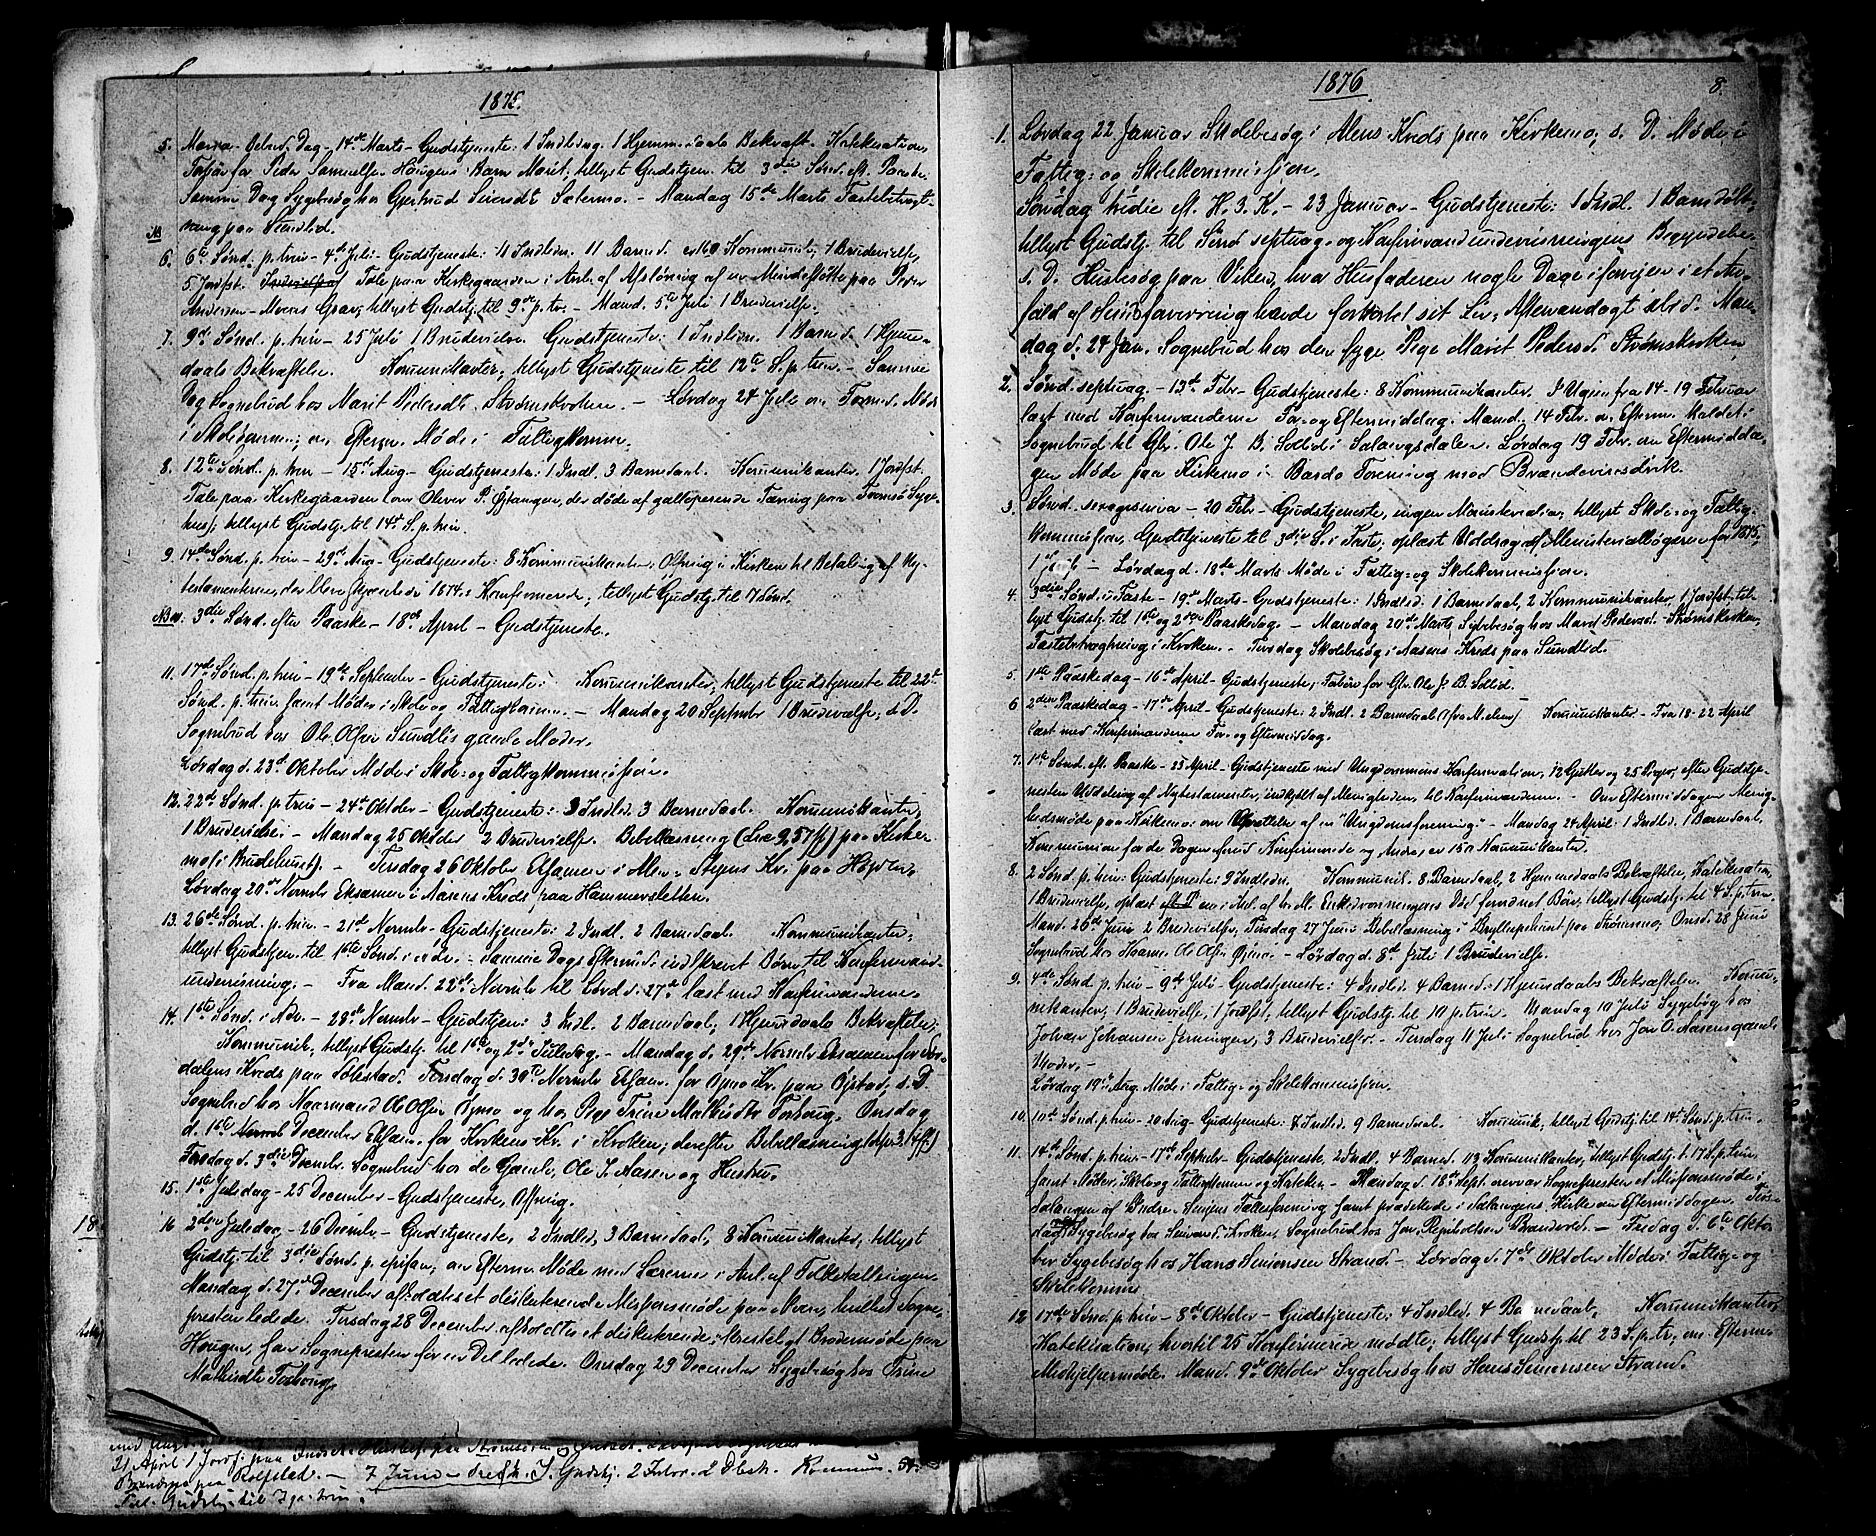 1875.
5. Maria Bebud. Dag - 14de Marts - Gudstjeneste: 1 Indledn. 1 Hjemmedaabs Bekræft. Katekisation,
for Peder Samuelsen Haugens Barn Marit; tillyst Gudstjen. til 3die Sønd. eft. Paaske.
Samme Dag Sygebesøg hos Gjertrud Sætermo. - Mandag 15de Marts
paa Sundlid.
NB
6. 6te Sønd. p. trin - 4de Juli - Gudstjeneste: 11 Indledn. 11 Barned. 160 Kommunik; 1 Brudevielse,
5 Jordfst. Tale paa Kirkegaarden i Anl. af Afsløring af en Mindestøtte paa Peder
Andersen Moens Grav; tillyst Gudstj. til 9de p. tr. - Mand. 5te Juli 1 Brudevielse.
7. 9de Sønd. p. trin - 25 Juli 1 Brudevielse. Gudstjeneste: 1 Indledn. 1 Barned. 1 Hjem-
daabs Bekræftelse. Kommunikanter, tillyst Gudstjeneste til 12te S. p. trin. - Samme
Dag Sognebud hos Marit Pedersdt. Strømskroken. - Lørdag 24 Juli om Formd. Møde
i Skolekomm.; om Efterm. Møde i Fattigkomm.
8. 12te Sønd. p. trin - 15de Aug - Gudstjeneste: 1 Indl. 3 Barnedaab. Kommunikanter. 1 Jordfst.
Tale paa Kirkegaarden om Oliver P. Østangen, der døde af galloperende Tæring paa Tromsø Syge-
hus; tillyst Gudstj. til 14de S. p. trin.
9. 14de Sønd. p. trin - 29de Aug - Gudstjeneste: 8 Kommunikanter, Ofring i Kirken til Betaling af Ny-
testamenterne, der bleve skjænkede 1874s Konfirmerede; tillyst Gudstj. til 17 Sønd.
NB 10: 3die Sønd. efter Paaske - 18de April - Gudstjeneste.
11. 17de Sønd. p. trin - 19de September - Gudstjeneste: Kommunikanter, tillyst Gudstjeneste til 22de
Sønd. p. trin samt Møde i Skole og Fattigkomm. - Mandag 20 September 1 Brudevielse; s. D.
Sognebud hos Ole Olsen Sundlis gamle Moder.
Lørdag d. 23de Oktober Møde i Skole- og Fattigkommissionen.
12. 22de Sønd. p. trin - 24de Oktober - Gudstjeneste: 3 Indled. 3 Barnedaab. Kommunikanter,
1 Brudevielse. - Mandag 25 Oktober 2 Brudevielser. Bibellæsning (Luc 9, 57 ff) paa Kirke-
mo (i Brudehuset). - Tirsdag 26 Oktober Examen i Moen - Stejens Kr. paa Høgden.
Lørdag 20de Novmbr Eksamen i Aasens Kreds paa Hammersletten.
13. 26de Sønd. p. trin. - 21de Novmbr - Gudstjeneste: 2 Indl. 2 Barnedaab. Kommunikanter,
tillyst Gudstjen. til 1ste Sønd. i adv. - Samme Dags Efterm. indskrevet Børn til Konfirmand-
undervisning. - Fra Mand. 22de Novmbr til Lørd d. 27de læst med Konfirmanderne.
14. 1ste Sønd. i Adv. - 28de Novmbr - Gudstjen: 3 Indl. 2 Barnedaab, 1 Hjemdaabs Bekræftelse,
Kommunik, tillyst Gudstj. til 1ste og 2den Juledag. - Mandag d. 29de Novmbr Eksamen for
dalens Kreds paa Solbstad. Tirsdag d. 30te Novmbr Exam. for Øxmo Kr. paa Øxstad; s. D.
Sognebud hos Kaarmand Ole Olsen Øxmo og hos Pige Trine Mathisdtr Forhoug. Onsdag
d. 1ste December Exam. for Krokens Kr. i Kroken; derefter Bibellæsning
Fredag d. 3die Decmbr Sognebud hos de Gamle, Ole I. Aasen og Hustru.
15. 1ste Juledag - 25 December - Gudstjeneste, Offring.
16 2den Juledag - 26 Decmbr - Gudstjeneste, 2 Indled, 3 Barnedaab, 8 Kommunikanter, tillyst
Gudstj. til 3die Sønd. p. epifan; om Efterm Møde med Lærerne i Anl. af Folketællingen.
Mandag d. 27de December afholdtes et diskuterende Missionsmøde paa Moen, hvilket Sogne-
presten ledede. Tirsdag 28 December afholdtes et diskuterende Brodermøde paa
Haugen, som Sognepresten for en Del ledede. Onsdag 29 December Sygebesøg hos Trine
Mathisdtr Forhoug.
21 April 1 Jordf. paa
paa Rolfstad. - 7 Juni - Gudstj. 2 Kommun.
Till. Gudstj. til
1876 8.
1. Lørdag 22 Januar Skolebesøg i Moens Kreds paa Kirkemo; s. D. Møde i
Fattig- og Skolekommissionen.
Søndag tredie eft. H. 3. K. - 23 Januar - Gudstjeneste: 1 Indl. 1 Barnedaab
tillyst Gudstj. til Sønd septuag. og Konfirmandundervisningens Begyndelse
s. D. Husbesøg paa Viken, hvor Husfaderen nogle Dage i forvejen i et An-
fald af Sindsforvirring havde forkortet sit Liv; Aftenandagt ibid. Man-
dag d. 24 Jan. Sognebud hos den syge Pige Marit Pedersd. Strømskroken
2. Sønd. septuag - 13de Febr - Gudstjeneste: 8 Kommunikanter. I Ugen fra 14-19 Februar
læst med Konfirmanderne For- og Eftermiddag. Mand. 14 Febr. om Efterm. kaldet i
Sognebud til Gbr. Ole J. B. Solid i Salangsdalen. Lørdag 19 Febr. om Eftermidda-
gen Møde paa Kirkemo i Bardo Forening mod Brændevinsdrik.
3. Sønd. sexagesima - 20 Febr - Gudstjeneste, ingen Ministerialia; tillyst Skole- og Fattig-
kommission, Gudstjeneste til 3die S. i Faste; oplæst Uddrag af Ministerialbøgerne for 1875;
1 Jordf. - Lørdag d. 18de Marts Møde i Fattig- og Skolekommissionen.
4. 3die Sønd. i Faste - 19de Marts - Gudstjeneste: 1 Indled. 1 Barnedaab, 2 Kommunikanter, 1 Jordfst. til-
lyst Gudstj. til 1ste og 2den Paaskedag. - Mandag 20de Marts Sygebesøg hos Marit Pedersd. Strømskroken,
i Kroken. - Tirsdag Skolebesøg i Aasens Kreds paa Sundlid.
5. 1ste Paaskedag - 16de April - Gudstjeneste; Forbøn for Gbr. Ole J. B. Solid.
6 2den Paaskedag - 17de April - Gudstjeneste: 2 Indl. 2 Barnedaab Kommunikanter - Fra 18-22 April
læst med Konfirmanderne For- og Eftermiddag.
7. 1ste Sønd. eft. Paaske - 23 April - Gudstjeneste med Ungdommens Konfirmation, 12 Gutter og 25 Piger, efter Gudstje-
nesten Uddeling af Nytestamenter, indkjøbt af Menigheden, til Konfirmanderne. - Om Eftermiddagen Menig-
hedsmøde paa Kirkemo: om Oprettelse af en "Ungdomsforening". - Mandag 24 April: 1 Indled. 1 Barnedaab,
Kommunion for de Dagen forud Konfirmerede og Andre, ca 150 Kommunikanter.
8. 2 Sønd. p. trin: Gudstjeneste: 9 Indledn. Kommunik. 8 Barnedaab, 2 Hjemmedaabs Bekræftelser, Katekisation,
1 Brudevielse, oplæst en i Anl. af H. M. Enkedronningens Død forordnet Bøn, tillyst Gudstj. til 4 S. p. trin
Mand. 26de Juni 2 Brudevielser, Tirsdag 27 Juni Bibellæsning i Bryllupshuset paa Strømsmo, Onsd. 28 Juni
Sognebud hos Kaarm. Ole Olsen Øxmo - Lørdag d. 8de Juli 1 Brudevielse.
9. 4de Sønd. p. trin - 9de Juli - Gudstjeneste: 4 Indled. 4 Barned. 1 Hjemdaabs Bekræftelse. Kommu-
nikanter, 1 Brudevielse, 1 Jordfst, tillyst Gudstj. til 10 p. trin. Mandag 10 Juli Sygebesøg hos
Johan Johansen Jerningen, 3 Brudevielser. - Tirsdag 11 Juli Sognebud hos Jon O. Aasens gamle
Moder. -
Lørdag 19de Aug. Møde i Fattig- og Skolekommissionen.
10. 10de Sønd. p. trin - 20 Aug - Gudstjeneste: 7 Indled. 9 Barnedaab. Kommunik, tillyst Gudstj. til 14de Sønd. p. trin.
11. 14de Sønd. p. trin - 17de Septbr - Gudstjeneste, 2 Indl. 4 Barned. 113 Kommunikanter, tillyst Gudstj. t. 17 S. p. trin.
samt Møder i Skole og Fattigkomm og Katekis. - Mandag d. 18de Sept. overvar Sognepresten et Missionsmøde i
Salangen af Indre Senjens Fællesforening samt prædikede i Salangens Kirke om Eftermiddagen. Tors-
dag Sygebesøg hos Kroken, Sognebud hos Jon Reinholdtsen Brandvold. - Fredag d. 6te Okto-
ber Sygebesøg hos Hans Simonsen Strand. - Lørdag d. 7de Oktober Møde i Fattig- og
Skolekomms
12 17de Sønd. p. trin - 8de Oktober - Gudstjeneste: 4 Indled. 4 Barnedaab, Kommunikanter,
Katekisation, hvortil 25 Konfirmerede mødte; tillyst Gudstj. til 23 S. p. tr., om Efterm.
Medhjælpermøde. Mand. 9de Oktober Sygebesøg hos Hans Simonsen Strand.